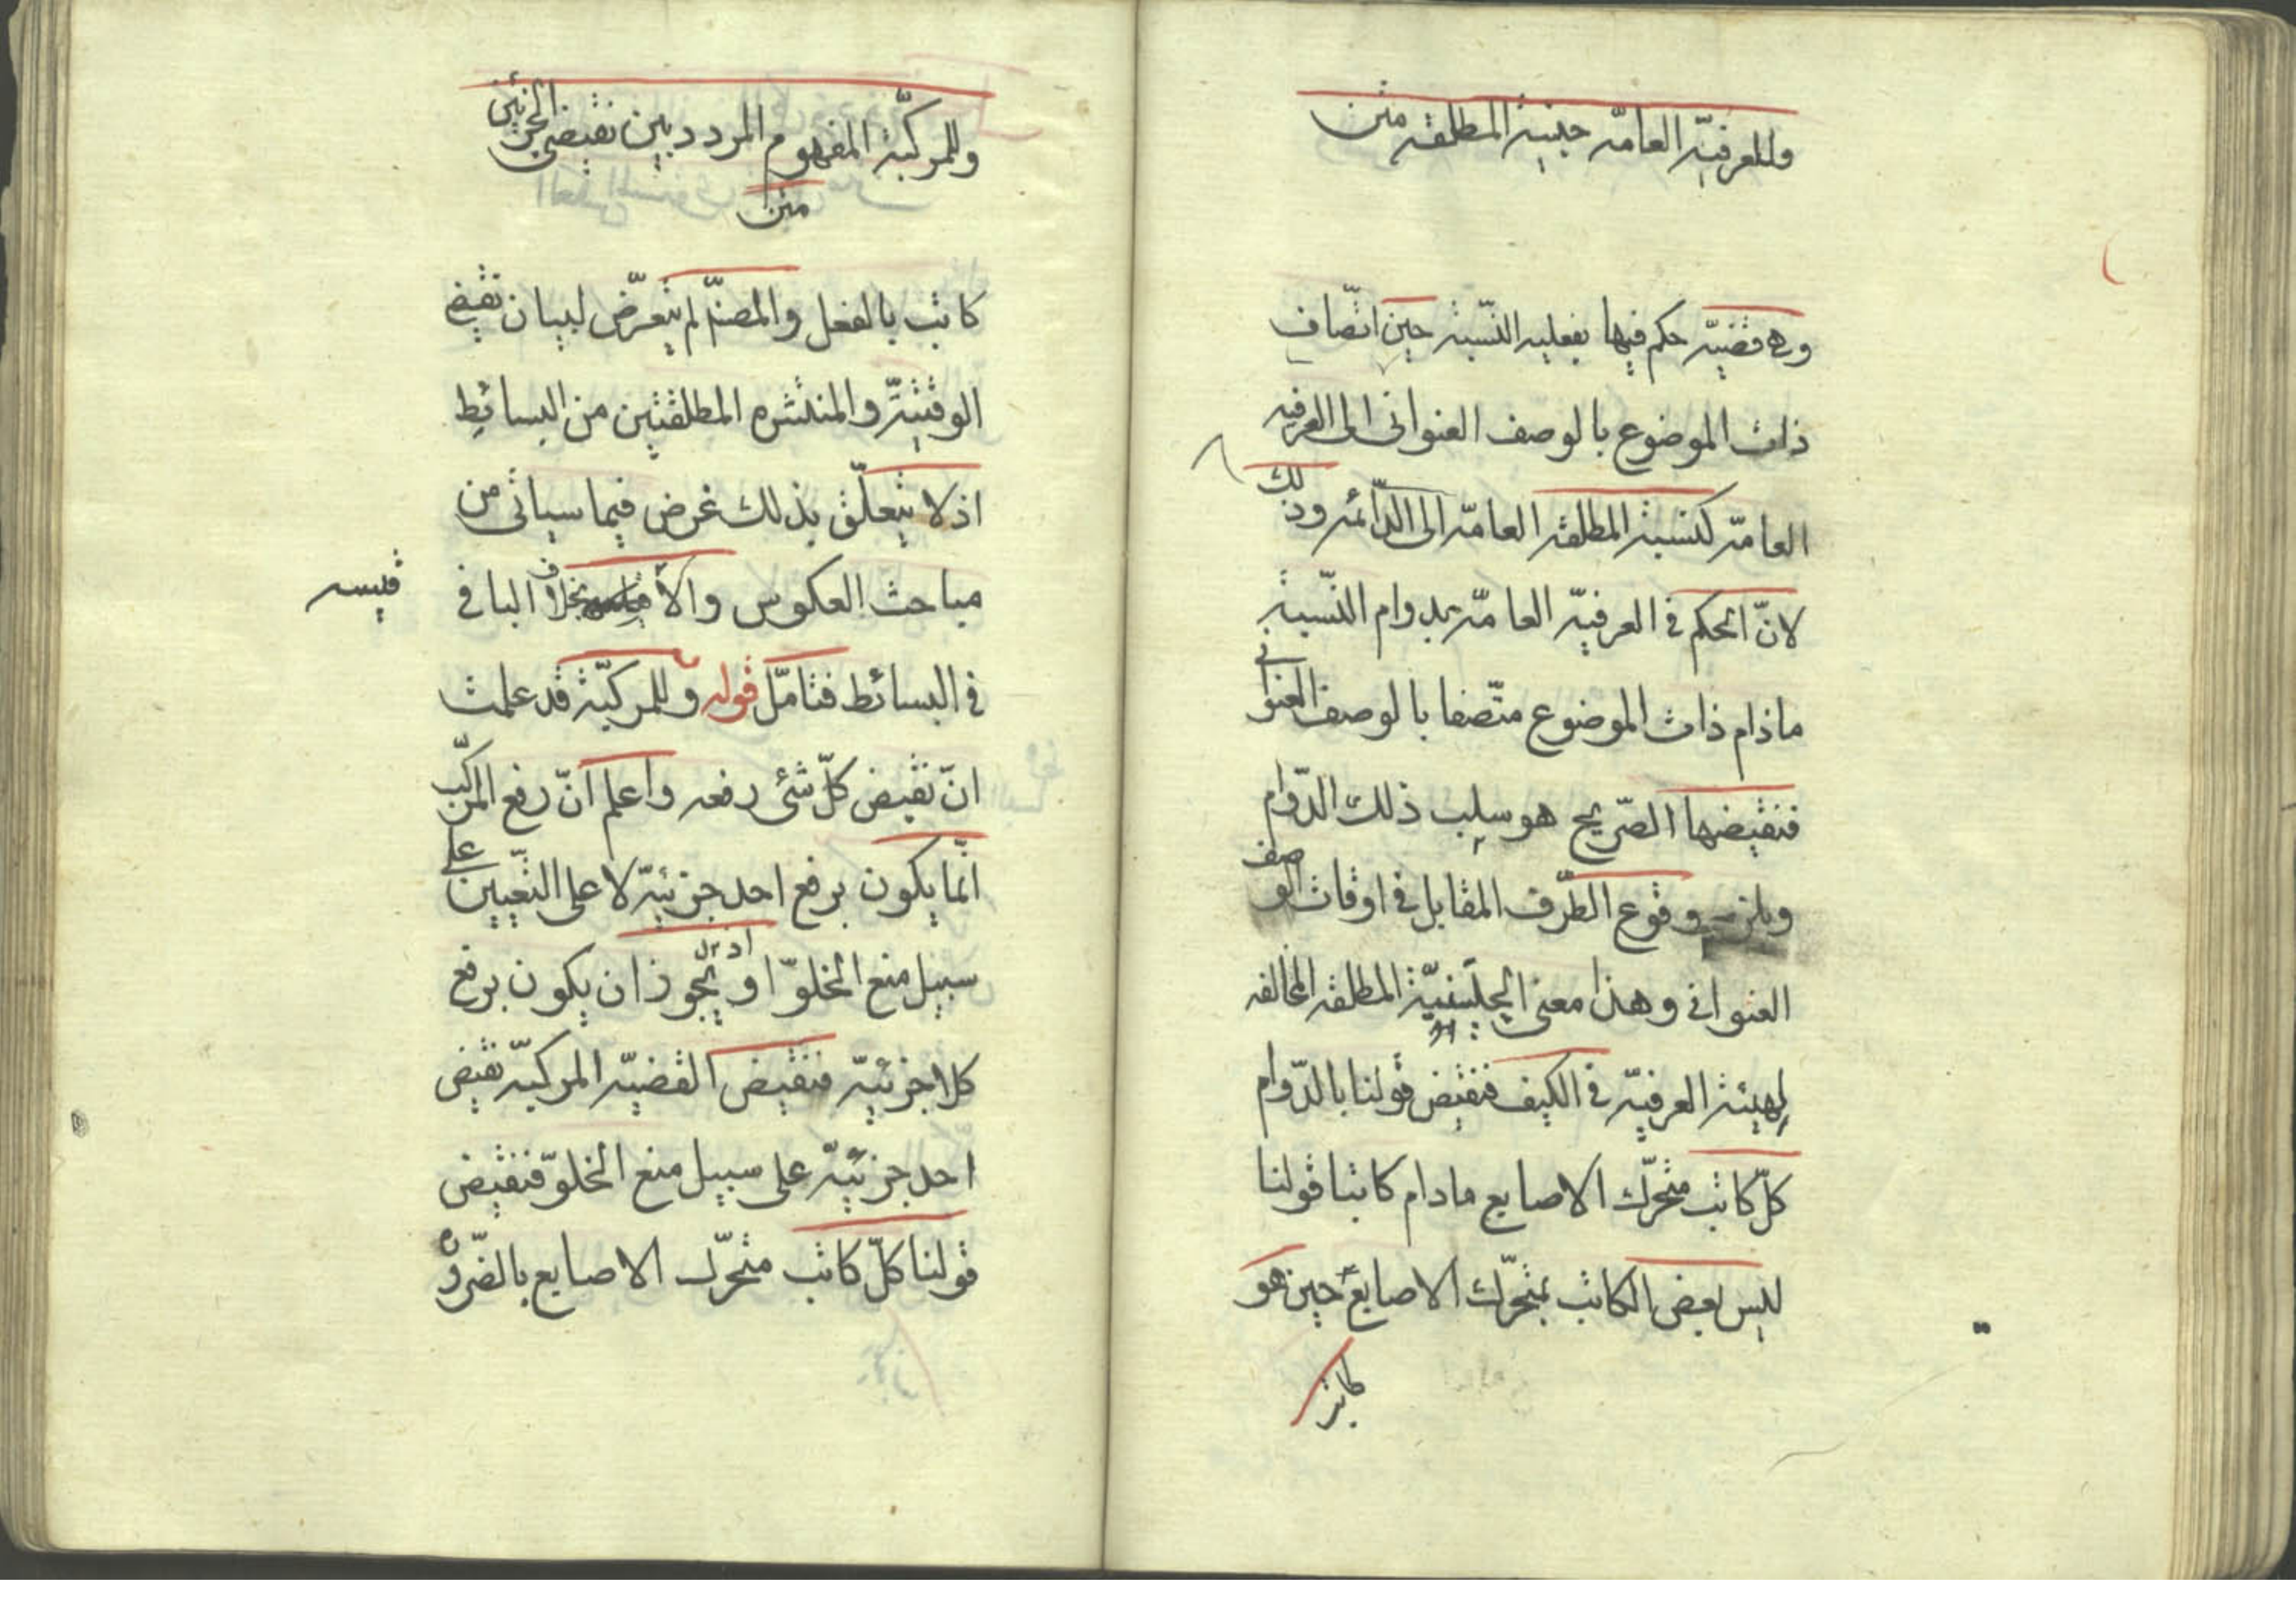 وللعرفيّة العامّه حينية المطلقه متن
وهى قضيّة حكم فيها بفعليه النّسبة حين اتّصاف
ذات الموضوع بالوصف العنوانى الى العرفيه
العامّة كنسبة المطلقه العامّة الى الدّائمه وذلك
لانّ الحكم فى العرفيّة العامّة بدوام النّسبة
ماذام ذات الموضوع متّصفا بالوصف العنوانى
فنقيضها الصّريح هو سلب ذلك الدّوام
ويلزمه وقوع الطّرف المقابل فى اوقات الوصف
العنوانى وهذا معنى الحينيّة المطلقه المخالفه
لهيئة العرفيّة فى الكيف فنقيض قولنا بالدّوام
كلّ كاتب متحرّك الاصابع مادام كاتبا قولنا
ليس بعض الكاتب بمتحرّك الاصابع حين هو
كاتب
وللمركّبة المفهوم المردد بين نقيضى الجزئين
متن
كاتب بالفعل والمصنّف لم يتعرّض لبيان نقيض
الوقتيّة والمنتشره المطلقتين من البسائط
اذ لا يتعلّق بذلك غرض فيما سياتى من
مباحث العكوس والأ بخلاف الباقى
قيسه
فى البسائط فتامّل قوله وللمركبّة قد علمت
انّ نقيض كلّ شئ رفعه واعلم انّ رفع المركّب
انّما يكون برفع احد جزئيّة لا على التّعيين على
سبيل منع الخلوّ اذ يجوز ان يكون برفع
كلا جزئيّة فنقيض القضيّة المركبّة نقيض
احد جزئيّة على سبيل منع الخلوّ فنقيض
قولنا كلّ كاتب متحرّك الاصابع بالضّروره